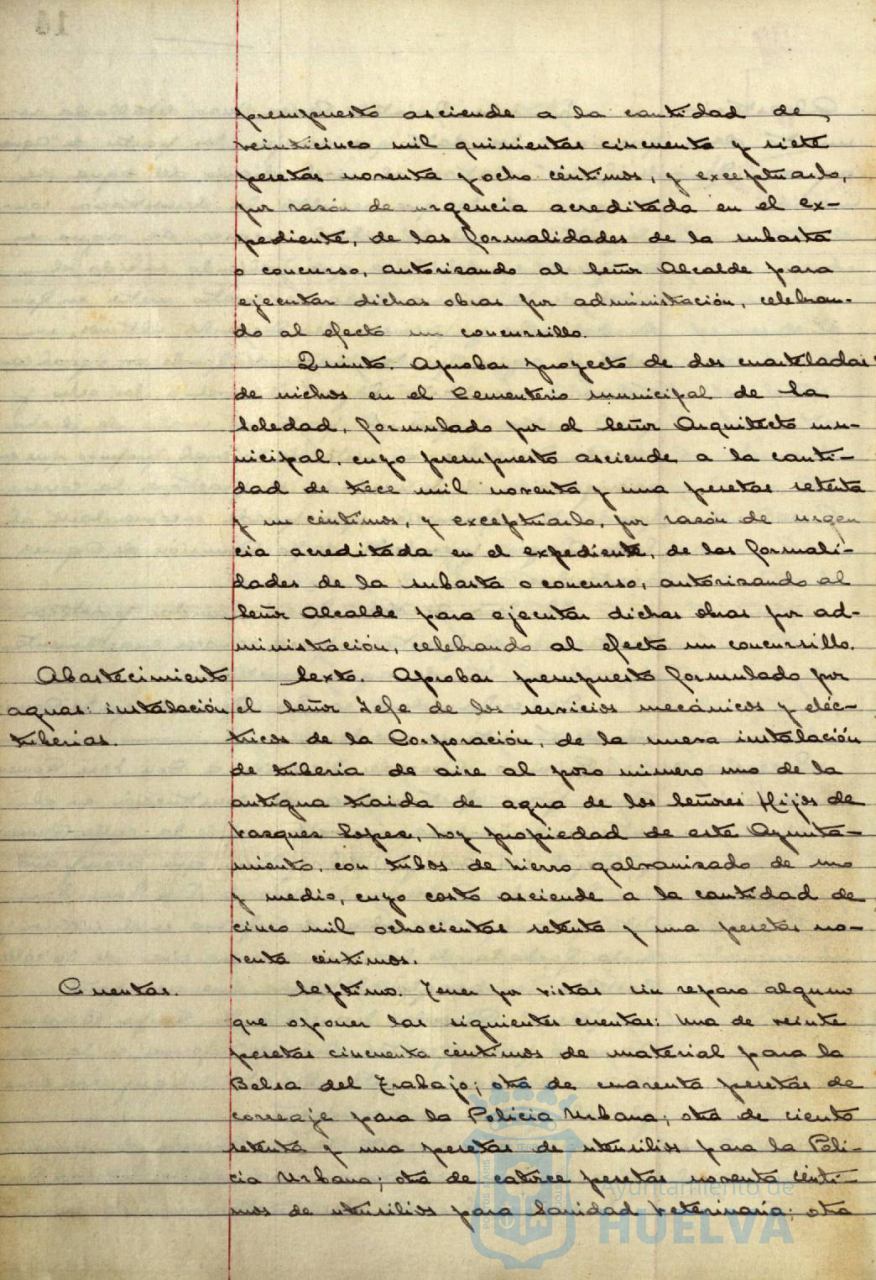 14
presupuesto asciende a la cantidad de
veinticinco mil quinientas cincuenta y siete
pesetas noventa y ocho céntimos, y exceptuarlo,
por razón de urgencia acreditada en el ex-
pediente, de las formalidades de la subasta
o concurso, autorizando al Señor Alcalde para
ejecutar dichas obras por administración, celebran-
do al efecto un concursillo.
Quinto. Aprobar proyecto de dos cuarteladas
de nichos en el Cementerio municipal de la
Soledad, formulado por el Señor Arquitecto mu-
nicipal, cuyo presupuesto asciende a la canti-
dad de trece mil noventa y una pesetas setenta
y un céntimos, y exceptuarlo, por razón de urgen
cia acreditada en el expediente, de las formali-
dades de la subasta o concurso, autorizando al
Señor Alcalde para ejecutar dichas obras por ad-
ministración, celebrando al efecto un concursillo.
Abastecimiento
aguas: instalación
tuberías.
Sexto. Aprobar presupuesto formulado por
el Señor Jefe de los servicios mecánicos y eléc-
tricos de la Corporación, de la nueva instalación
de tubería de aire al pozo número uno de la
antigua traida de agua de los Señores Hijos de
Vazquez Lopez, hoy propiedad de este Ayunta-
miento, con tubos de hierro galvanizado de uno
y medio, cuyo costo asciende a la cantidad de
cinco mil ochocientas setenta y una pesetas no-
venta céntimos.
Cuentas.
Septimo. Tener por vistas sin reparo alguno
que oponer las siguientes cuentas: Una de veinte
pesetas cincuenta céntimos de material para la
Bolsa del Trabajo; otra de cuarenta pesetas de
correaje para la Policia Urbana; otra de ciento
setenta y una pesetas de utensilios para la Poli-
cia Urbana; otra de catorce pesetas noventa cénti-
mos de utensilios para Sanidad Veterinaria; otra
Ayuntamiento de
HUELVA